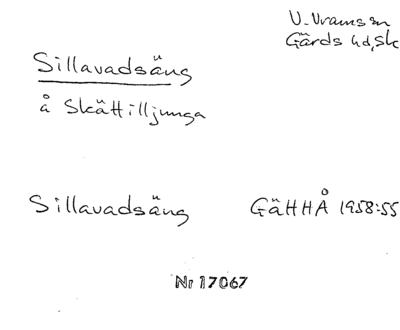 V. Vram sn
Gärds hd, Sk
Sillavadsäng
å Skättilljunga
Sillavadsäng GäHHÅ 1958:55
Nr 17067